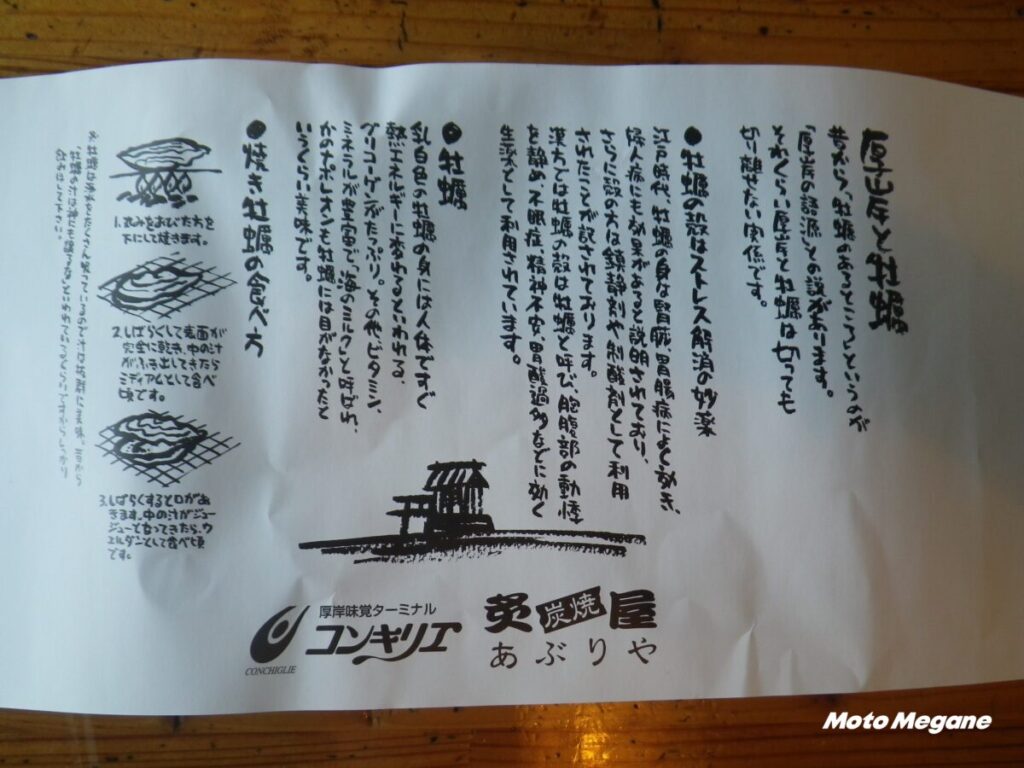 厚岸と牡蠣
昔から、「牡蠣のあるところ」というのが
「厚岸の語源」との説があります。
それくらい厚岸と牡蠣は切っても
切り離せない関係です。
●牡蠣の殻はストレス解消の妙薬
江戸時代、牡蠣の身は胃臓、胃腸病によく効き、
婦人病にも効果があると説明されており、
さらに殻の方は鎮静剤や制酸剤として利用
されたことが記されております。
漢方では牡蠣の殻は牡蠣と呼び、胞腹部の動悸
を静め、不眠症、精神不安、胃酸過多などに効く
生薬として利用されています。
●牡蠣
乳白色の牡蠣の身には人体ですぐ
熱エネルギーに変わるといわれる、
グリコーゲンがたっぷり。その他、ビタミン、
ミネラルが豊富で、「海のミルク」と呼ばれ、
かのナポレオンも牡蠣には目がなかったと
いうくらい美味です。
●焼き牡蠣の食べ方
1.丸みをおびた方を
下にして焼きます。
2.しばらくして表面が
完全に乾き、中の汁
がふき出してきたら
ミディアムとして食べ
頃です。
3.しばらくすると口があ
きます。中の汁がジュー
ジューとなってきたら、ウ
エルダンとして食べ頃
です。
牡蠣は海水をたくさん吸っているので汁は抜群に美味。昔から
厚岸味覚ターミナル
コンキリエ
CONCHIGLIE
炙炭焼屋
あぶりや
Moto Megane